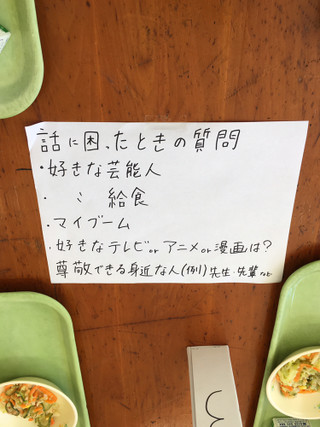 話に困ったときの質問
・好きな芸能人
・〃 給食
・マイブーム
・好きなテレビorアニメor漫画は?
尊敬できる身近な人(例)先生・先輩など